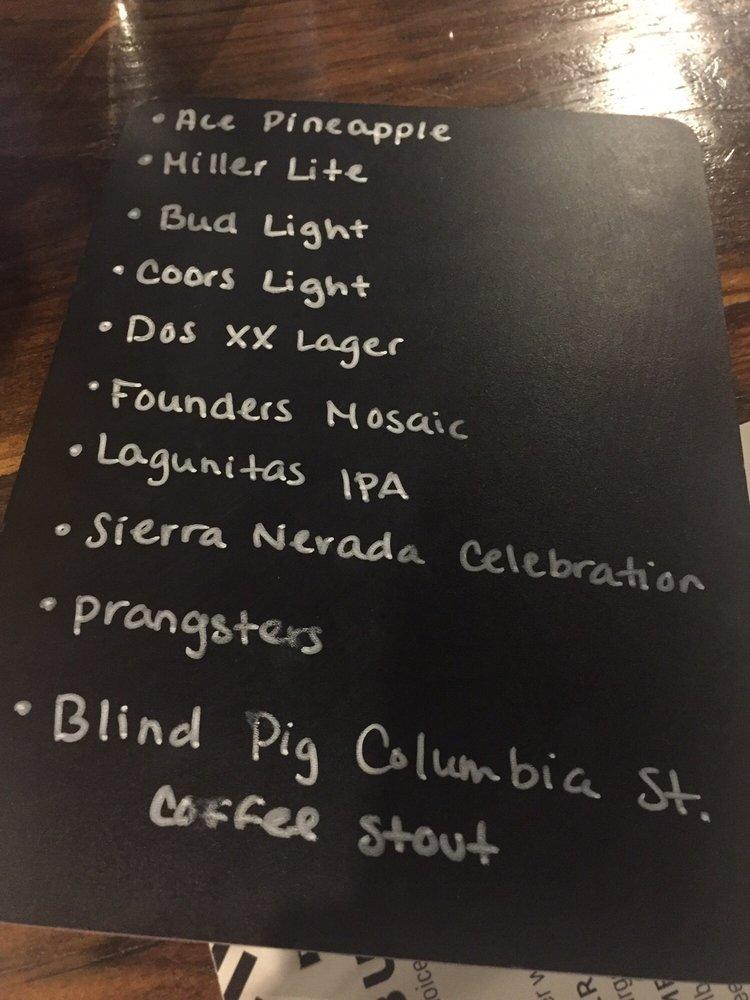 • Ace Pineapple
• Miller Lite
• Bud Light
• Coors Light
• Dos XX Lager
• Founders Mosaic
• Lagunitas IPA
• Sierra Nevada Celebration
• Prangsters
• Blind Pig Columbia St.
Coffee Stout